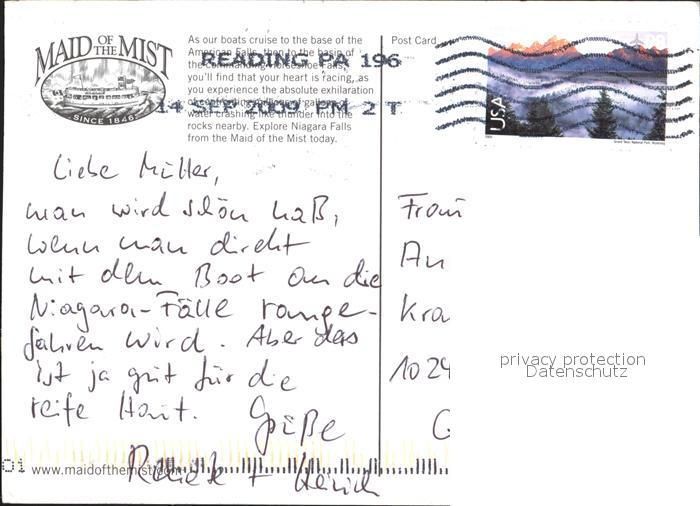 MAID OF THE MIST
SINCE 1846
As our boats cruise to the base of the
American Falls, then to the basin of
the Horseshoe Falls,
you'll find that your heart is racing, as
you experience the absolute exhilaration
of gallons of
water crashing like thunder into the
rocks nearby. Explore Niagara Falls
from the Maid of the Mist today.
Post Card
READING PA 196
14 SEP 2009 PM 2 T
USA
98
Liebe Mütter,
man wird schön naß,
wenn man direkt
mit dem Boot an die
Niagara-Fälle range-
fahren wird. Aber das
ist ja gut für die
reife Haut. Grüße
Frau
An
Kra
1024
privacy protection
Datenschutz
01 www.maidofthemist.com